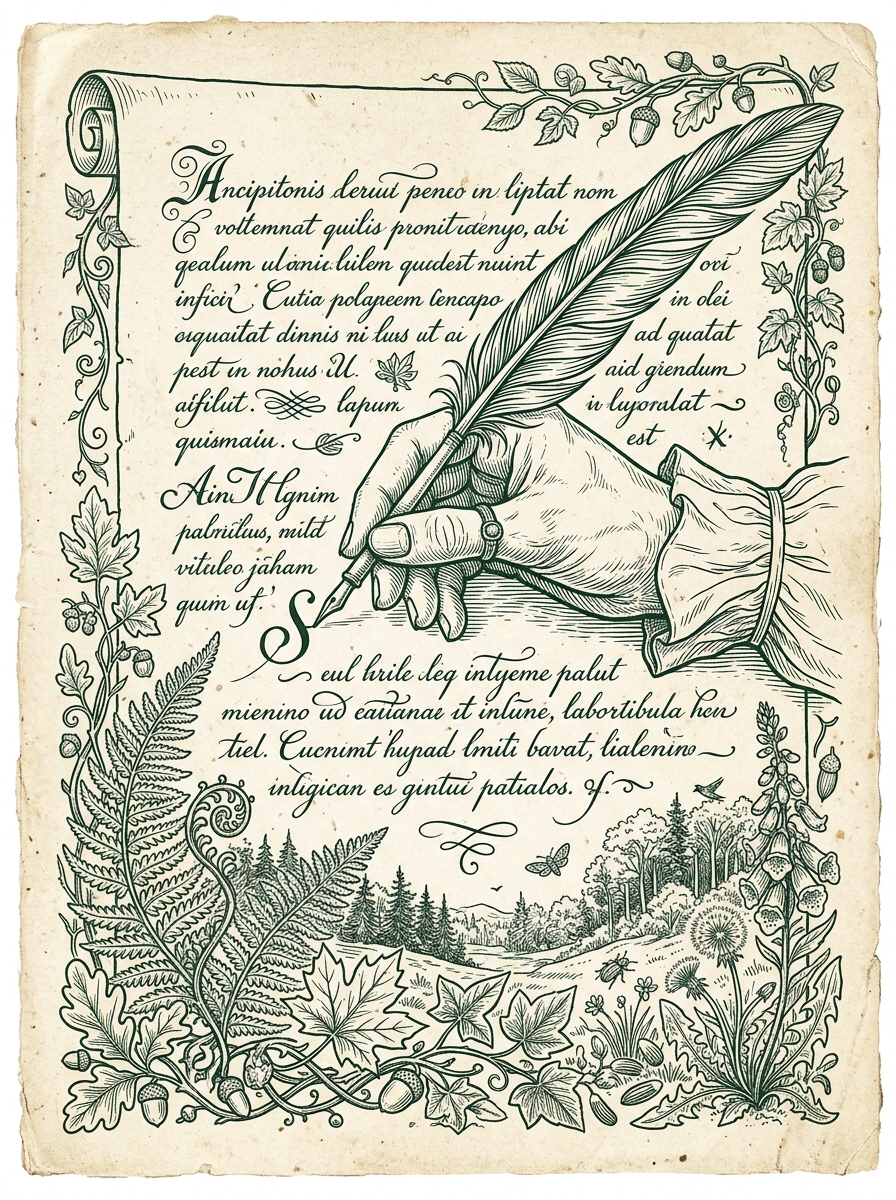 Ancipitonis deruit peneo in liptat nom
voltemnat quilis pronit idenyo, abi
gealum ulanic liilem qucdest nuint ori
inficiz Cutia polapeem Cencapo in olei
oiquaitat dinnis ni lus ut ai ad quatat
pest in nohus U. aid giendum
aifilut. lapum iv luyoralat
quismaiu. est
Ain It lgnim
palriilius, mild
vituleo jaham
quim uf.
S
eul hrile deq intyeme palut
mienino ud cautanae it inlune, labortibula hen
tiel. Cucnimt hupad lmiti bavat, lialenino
inligican es gintui patialos.